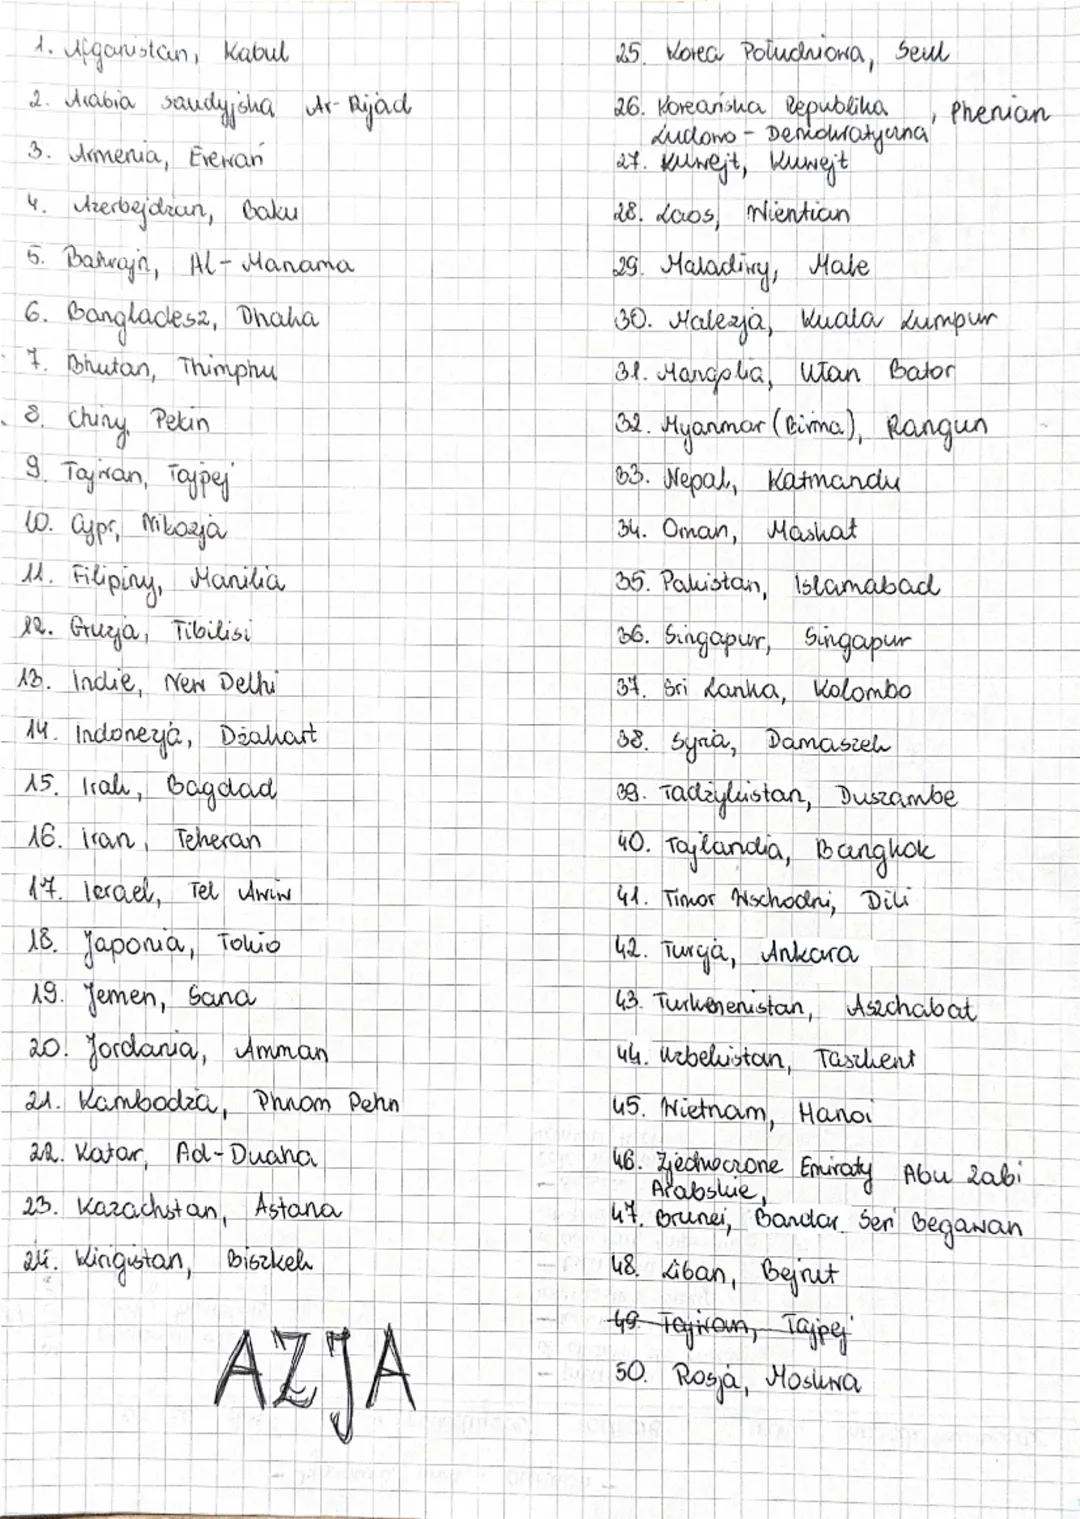 1. Afganistan, Kabul
2. Arabia saudyjska Ar-Rijad
3. Armenia, Erewań
4. Azerbejdżan, Baku
5. Bahrajn, Al-Manama
6. Bangladesz, Dhaka
7. Bhutan, Thimphu
8. Chiny, Pekin
9. Tajwan, Tajpej
10. Cypr, Nikozja
11. Filipiny, Manilia
12. Gruzja, Tibilisi
13. Indie, New Delhi
14. Indonezja, Dżakart
15. Irak, Bagdad
16. Iran, Teheran
17. Izrael, Tel Awiw
18. Japonia, Tokio
19. Jemen, Sana
20. Jordania, Amman
21. Kambodża, Phnom Pehn
22. Katar, Ad-Duaha
23. Kazachstan, Astana
24. Kirigistan, Biszkek
AZJA
25. Korea Południowa, Seul
26. Koreańska Republika Ludowo-Demokratyczna, Phenian
27. Kuwejt, Kuwejt
28. Laos, Wientian
29. Maladiwy, Male
30. Malezja, Kuala Lumpur
31. Mongolia, Ułan Bator
32. Myanmar (Birma), Rangun
33. Nepal, Katmandu
34. Oman, Maskat
35. Pakistan, Islamabad
36. Singapur, Singapur
37. Sri Lanka, Kolombo
38. Syria, Damaszek
39. Tadżykistan, Duszambe
40. Tajlandia, Bangkok
41. Timor Wschodni, Dili
42. Turcja, Ankara
43. Turkmenistan, Aszchabat
44. Uzbekistan, Taszkent
45. Wietnam, Hanoi
46. Zjednoczone Emiraty Arabskie, Abu Zabi
47. Brunei, Bandar Seri Begawan
48. Liban, Bejrut
49 Tajwan, Tajpej
50. Rosja, Moskwa